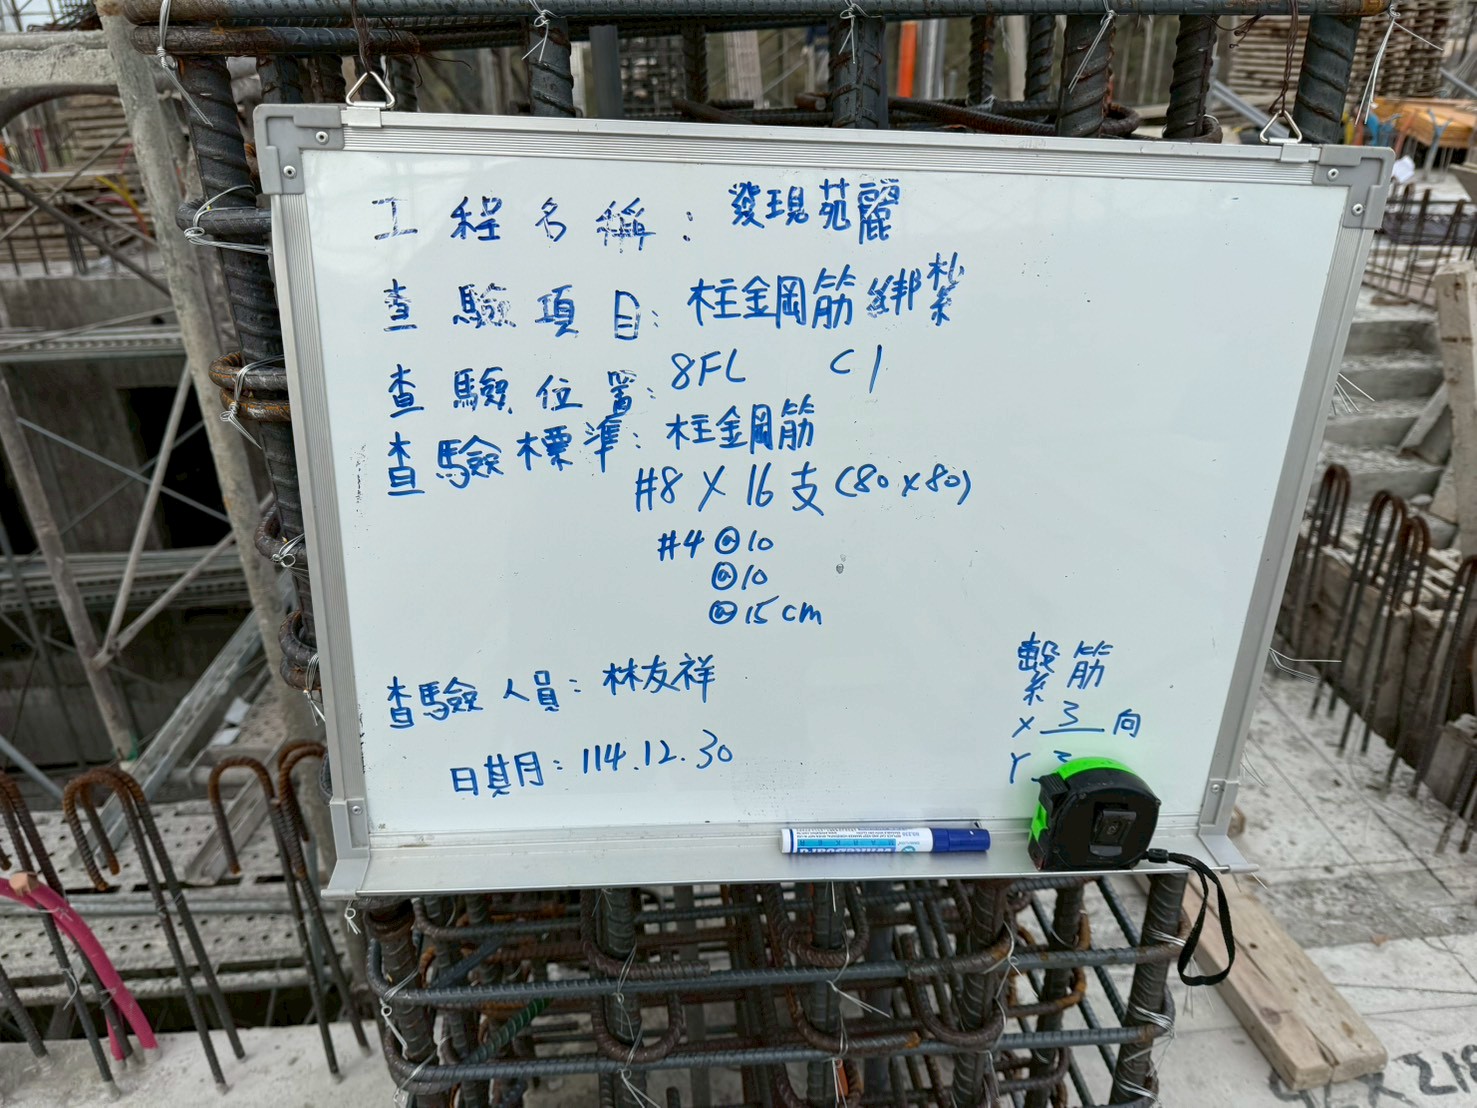 工程名稱：發現苑麗
查驗項目：柱鋼筋綁紮
查驗位置：8FL C1
查驗標準：柱鋼筋
#8 X 16支(80x80)
#4@10
@10
@15cm
繫筋
X 3 向
Y 3
查驗人員：林友祥
日期：114.12.30